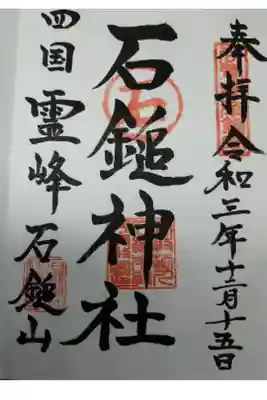 奉拝 令和三年十二月十五日
石鎚神社
四国霊峰石鎚山